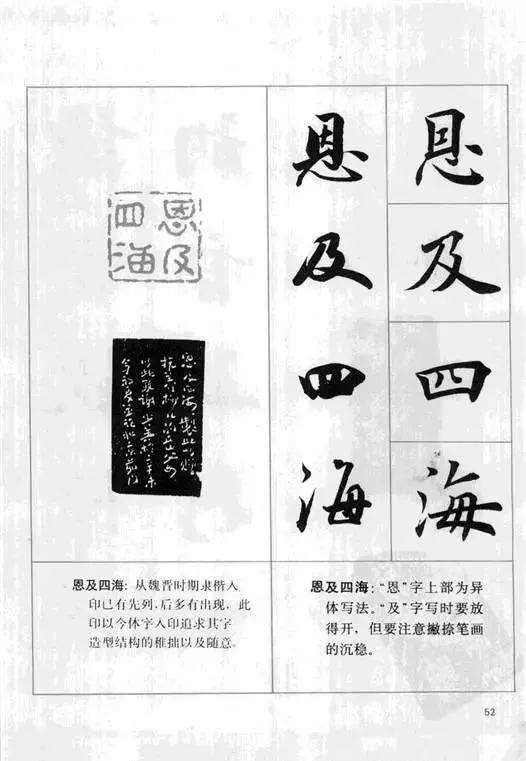 恩及四海
恩及四海
恩及
四海
恩及四海：从魏晋时期隶楷入
印已有先列，后多有出现，此
印以今体字入印追求其字
造型结构的稚拙以及随意。
恩及四海：“恩”字上部为异
体写法。“及”字写时要放
得开，但要注意撇捺笔画
的沉稳。
52